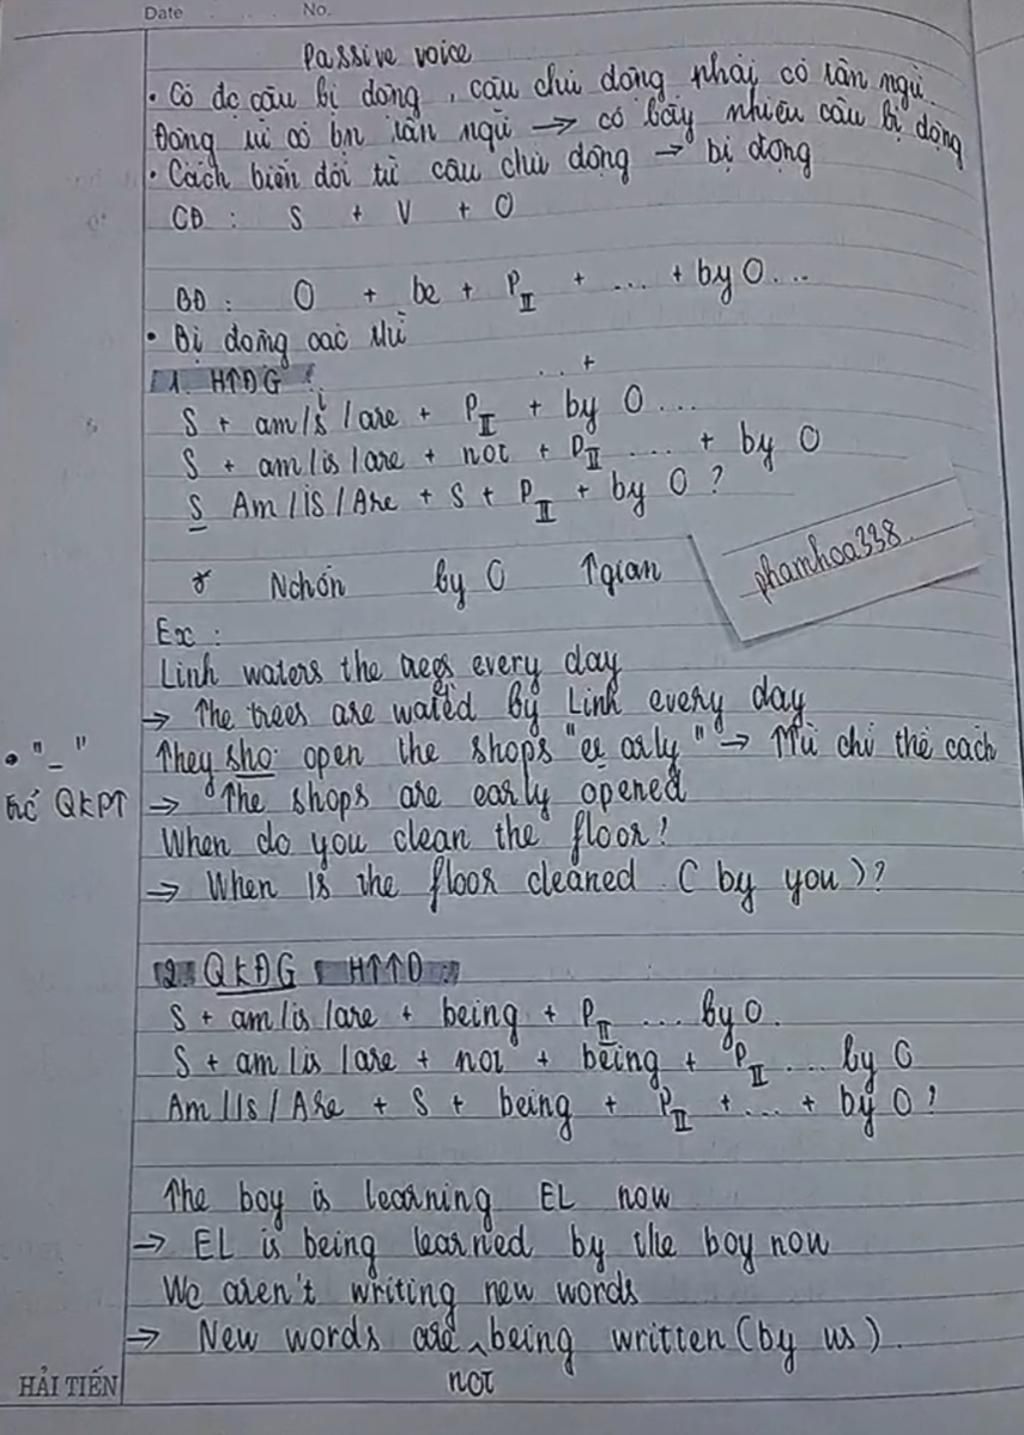 Date No.
Passive voice
• Có đc câu bị động, câu chủ động phải có tân ngữ.
Động từ có bn tân ngữ → có bấy nhiêu câu bị động
• Cách biến đổi từ câu chủ động → bị động
CĐ : S + V + O
BĐ : O + be + PII + ... + by O...
• Bị động các thì
1. HTĐG :
... +
S + am/is/are + PII + by O ...
S + am/is/are + not + PII .... + by O
S Am/is/Are + S + PII + by O ?
* Nchốn by O Tgian
phamhoa338
Ex :
Linh waters the trees every day
→ The trees are wated by Linh every day
They sho open the shops "ee arly" → Từ chỉ thể cách
• "_"
→ The shops are early opened
trc QKPT
When do you clean the floor?
→ When is the floor cleaned (by you)?
2. QKĐG HTTD :
S + am/is/are + being + PII .... by O.
S + am/is/are + not + being + PII .... by O
Am/Is/Are + S + being + PII + ... + by O?
The boy is learning EL now
→ EL is being learned by the boy now
We aren't writing new words
→ New words are ^ being written (by us).
not
HẢI TIẾN